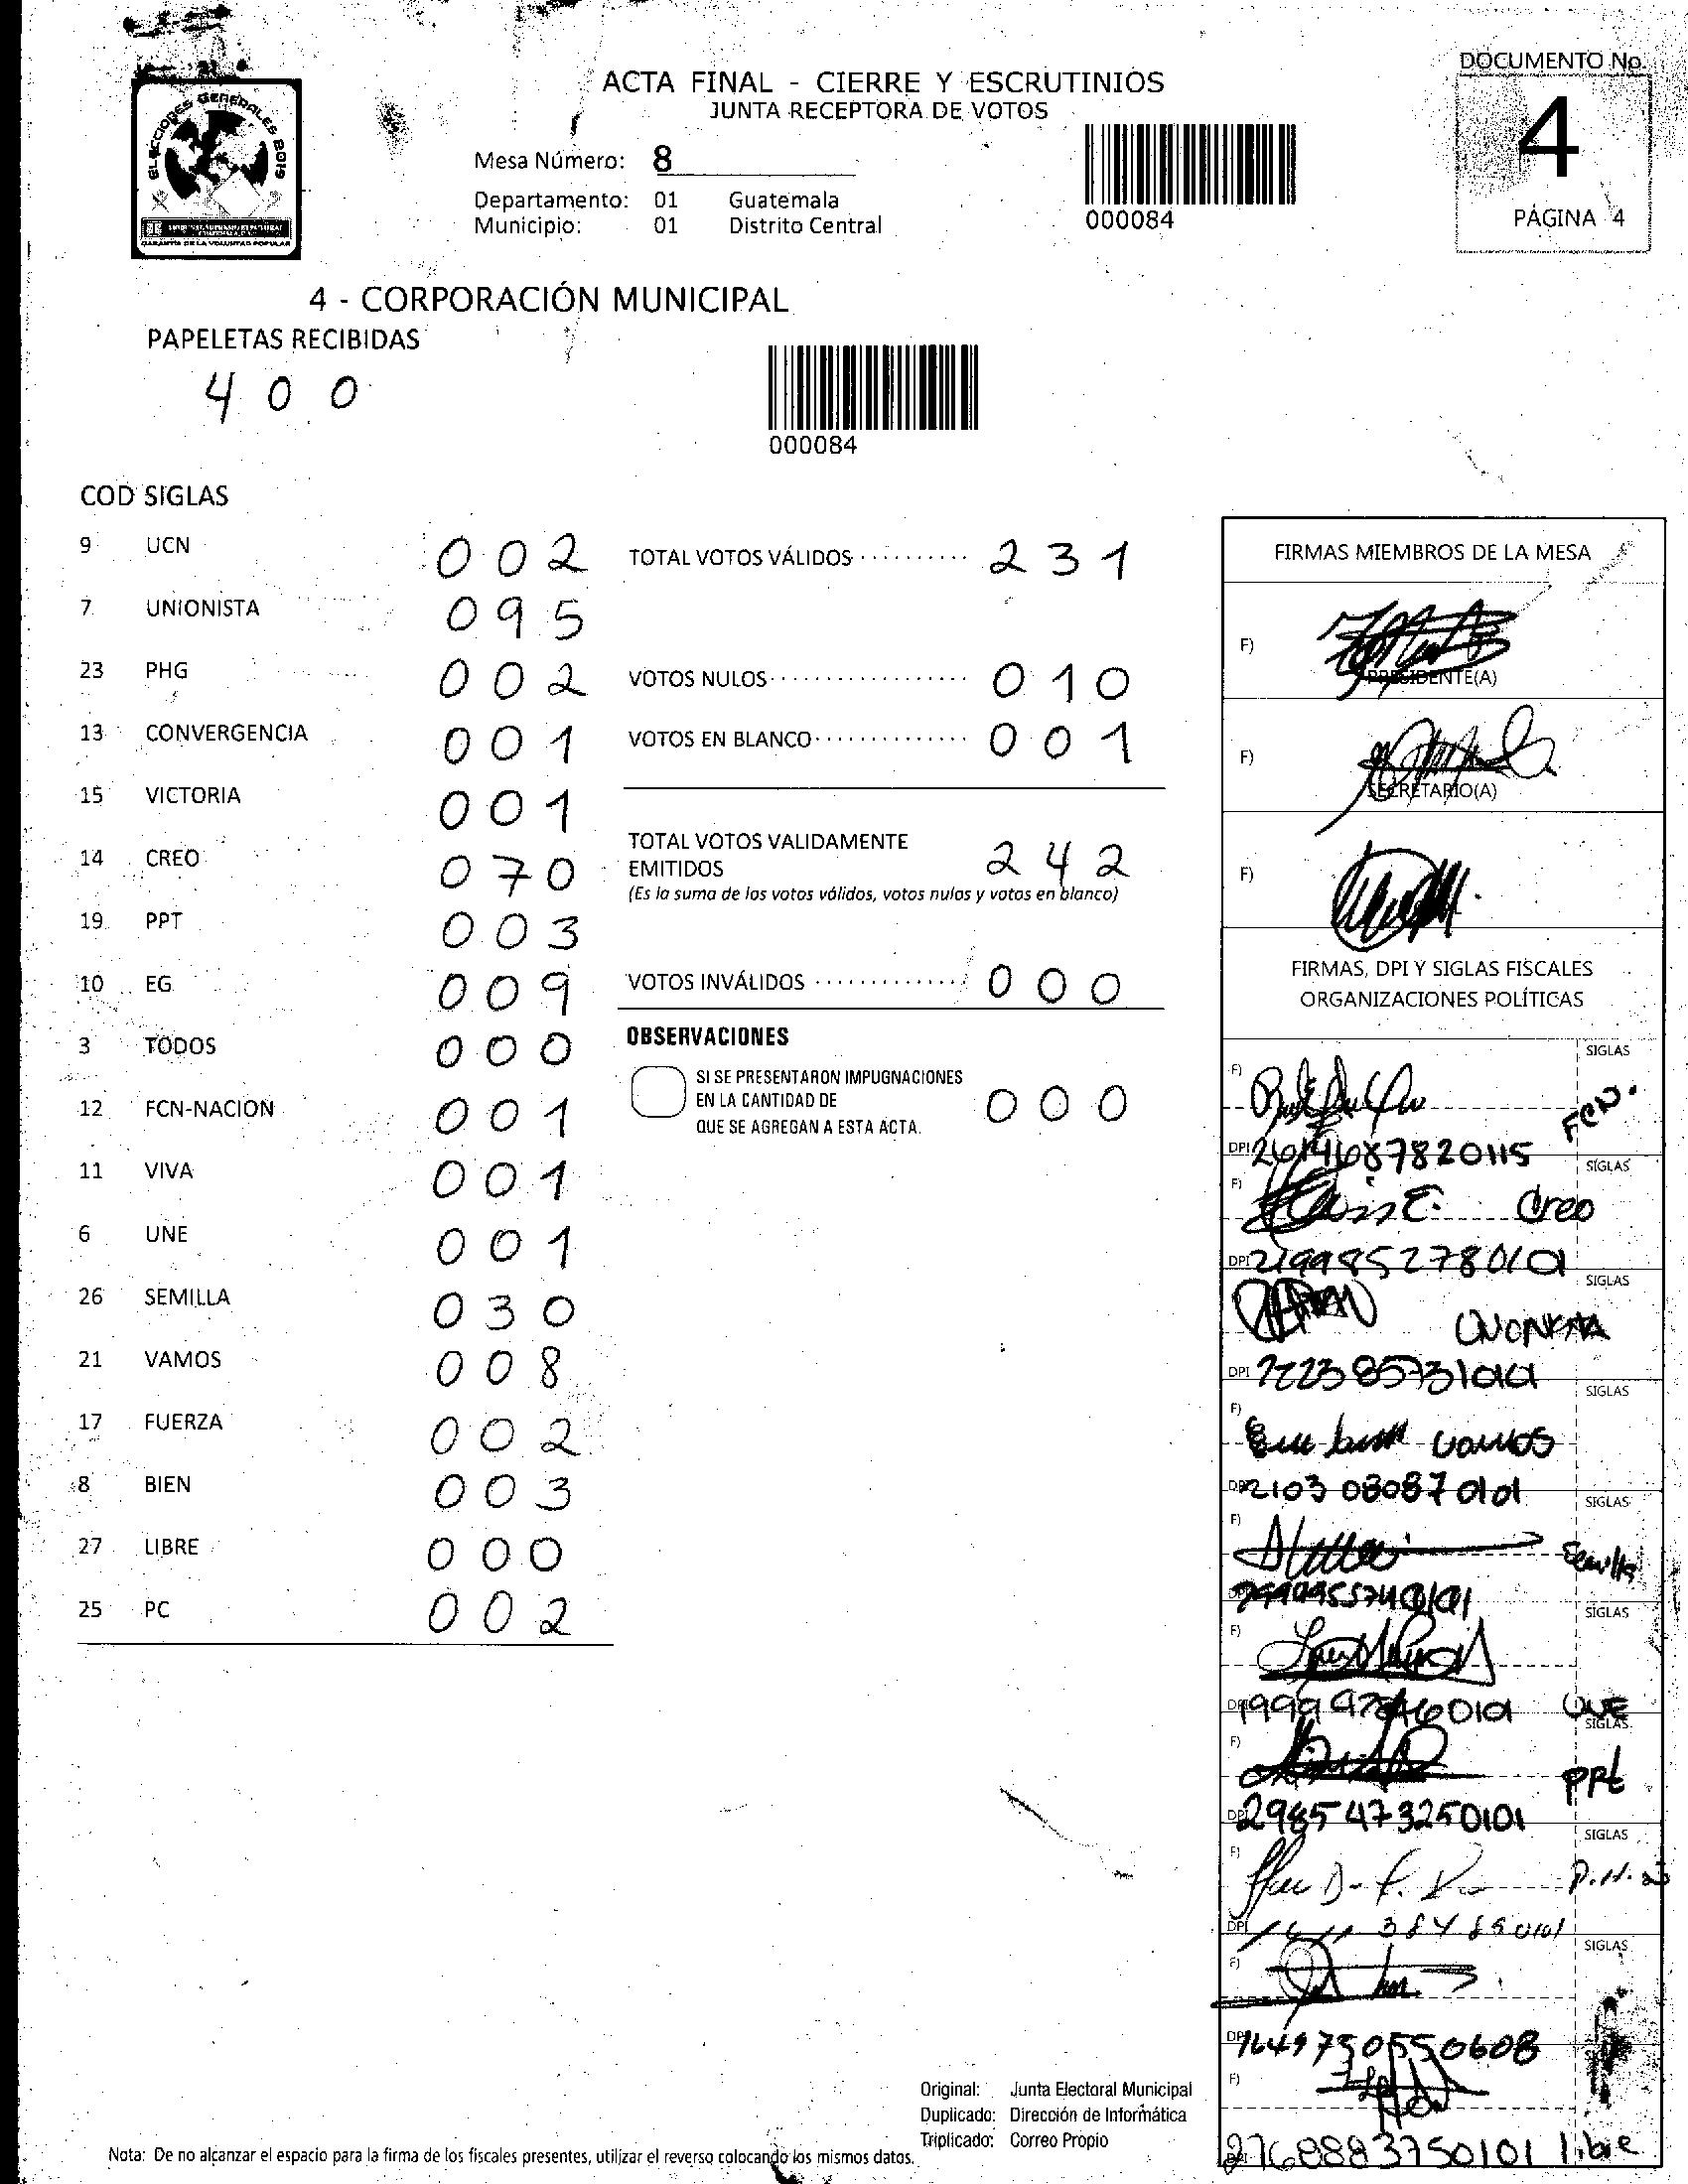 ACTA FINAL - CIERRE Y ESCRUTINIOS
JUNTA RECEPTORA DE VOTOS
DOCUMENTO No.
4
PÁGINA 4
ELECCIONES GENERALES 2019
GARANTÍA DE LA VOLUNTAD POPULAR
Mesa Número: 8
Departamento: 01 Guatemala
Municipio: 01 Distrito Central
000084
4 - CORPORACIÓN MUNICIPAL
PAPELETAS RECIBIDAS
4 0 0
000084
COD SIGLAS
9 UCN 0 0 2
7 UNIONISTA 0 9 5
23 PHG 0 0 2
13 CONVERGENCIA 0 0 1
15 VICTORIA 0 0 1
14 CREO 0 7 0
19 PPT 0 0 3
10 EG 0 0 9
3 TODOS 0 0 0
12 FCN-NACION 0 0 1
11 VIVA 0 0 1
6 UNE 0 0 1
26 SEMILLA 0 3 0
21 VAMOS 0 0 8
17 FUERZA 0 0 2
8 BIEN 0 0 3
27 LIBRE 0 0 0
25 PC 0 0 2
TOTAL VOTOS VÁLIDOS 2 3 1
VOTOS NULOS 0 1 0
VOTOS EN BLANCO 0 0 1
TOTAL VOTOS VALIDAMENTE
EMITIDOS 2 4 2
(Es la suma de los votos válidos, votos nulos y votos en blanco)
VOTOS INVÁLIDOS 0 0 0
OBSERVACIONES
SI SE PRESENTARON IMPUGNACIONES
EN LA CANTIDAD DE 0 0 0
QUE SE AGREGAN A ESTA ACTA.
FIRMAS MIEMBROS DE LA MESA
F)
PRESIDENTE(A)
F)
SECRETARIO(A)
F)
FIRMAS, DPI Y SIGLAS FISCALES
ORGANIZACIONES POLÍTICAS
F) SIGLAS
FCN.
DPI
F) SIGLAS
Creo
DPI
SIGLAS
DPI
F) SIGLAS
vamos
DPI 2103 08087 0101
F) SIGLAS
Semilla
F) SIGLAS
DPI UNE
F) SIGLAS
PPt
DPI 2985 473250101
F) SIGLAS
DPI
F) SIGLAS
DPI
F)
2768883750101 libre
Original: Junta Electoral Municipal
Duplicado: Dirección de Informática
Triplicado: Correo Propio
Nota: De no alcanzar el espacio para la firma de los fiscales presentes, utilizar el reverso colocando los mismos datos.